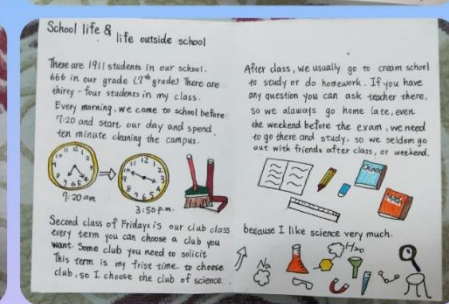 School life &
life outside school
There are 1911 students in our school.
666 in our grade (7th grade) There are
thirty-four students in my class.
Every morning, we come to school before
7:20 and start our day and spend
ten minute cleaning the campus.
7:20 am
3:50 p.m.
Second class of Fridays is our club class
every term you can choose a club you
want. Some club you need to solicit
This term is my frist time. to choose
club, so I choose the club of science
After class, we usually go to cream school
to study or do homework. If you have
any question you can ask teacher there,
so we always go home late, even
the weekend before the exam, we need
to go there and study. so we seldom go
out with friends after class, or weekend.
Math
because I like science very much.
H2O